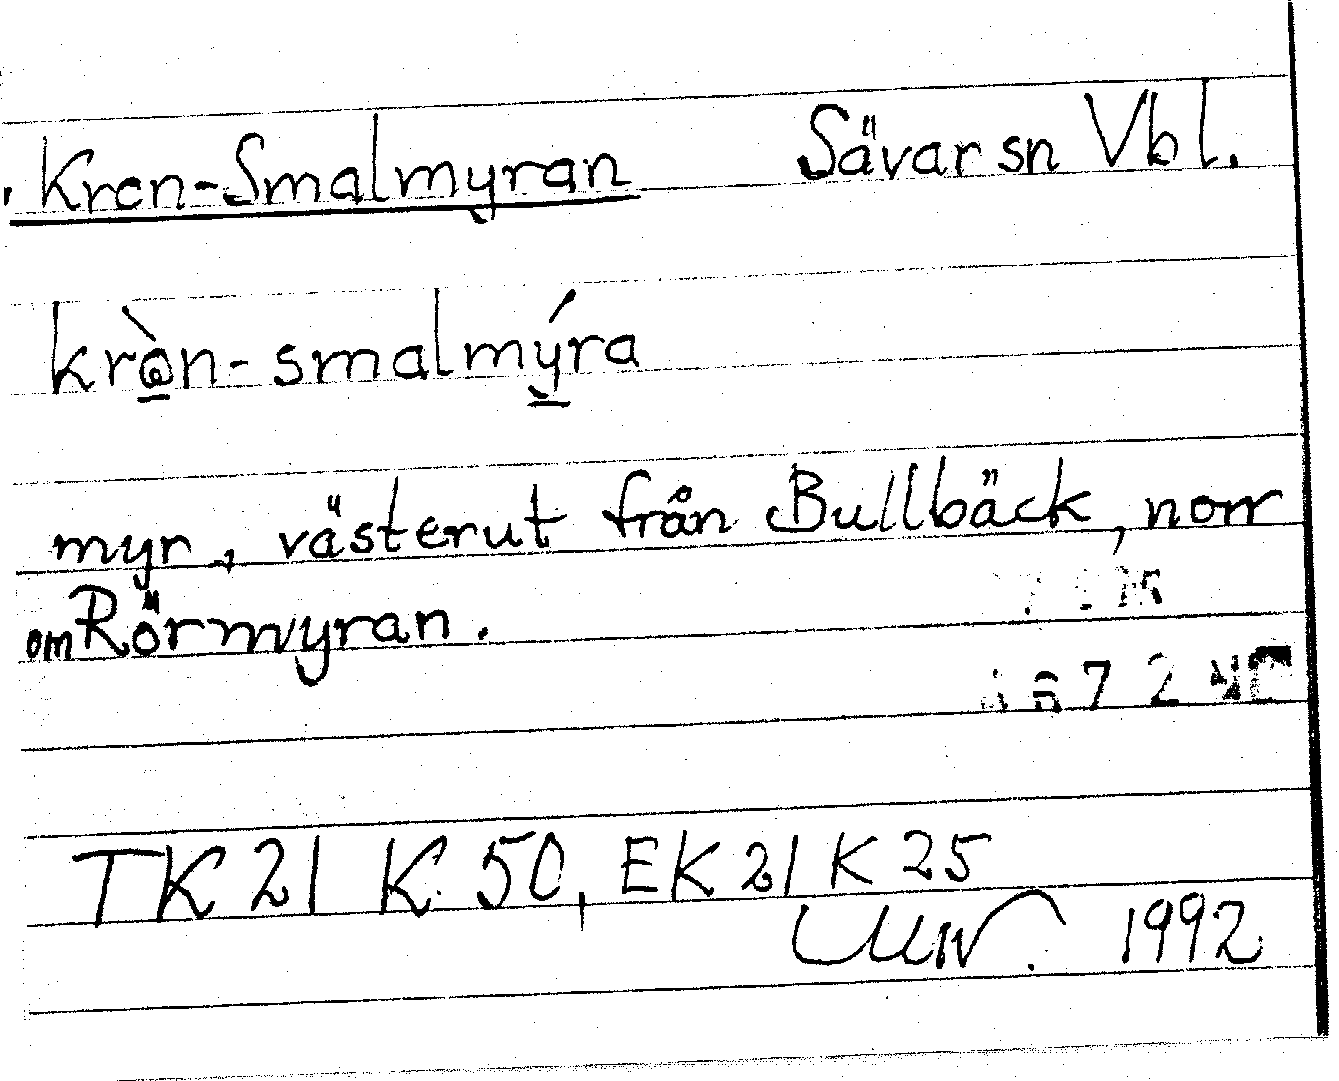 Kren-Smalmyran Sävar sn Vbl.
kr&n-smalmýra
myr, västerut från Bullbäck, norr
om Rörmyran.
672
TK 21 K 50, EK 21 K 25
1992